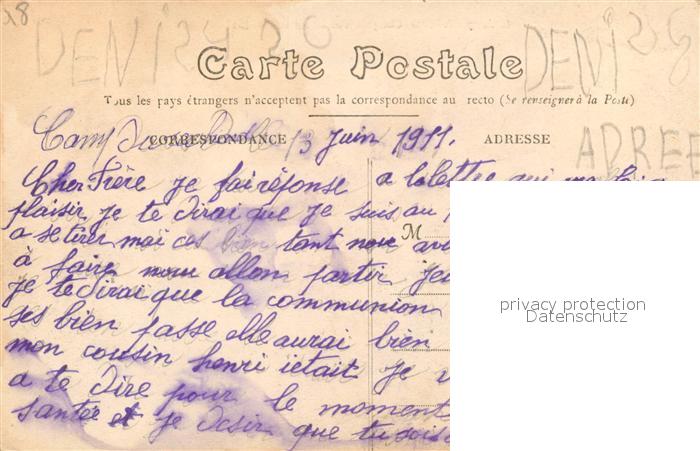 DENI DENI
Carte Postale
Tous les pays étrangers n'acceptent pas la correspondance au recto (Se renseigner à la Poste)
CORRESPONDANCE ADRESSE
Camp 13 Juin 1911.
ADRE
Cher Frère je fai réponse a la lettre qui ma
plaisir je te dirai que je suis au
a se tirer mai ces bien tant nou
M
à faire nou allon partir
je te dirai que la communion
ses bien passe elle aurai bien
mon cousin henri ietait je
a te dire pour le moment
santée et je desir que tu sois
privacy protection
Datenschutz